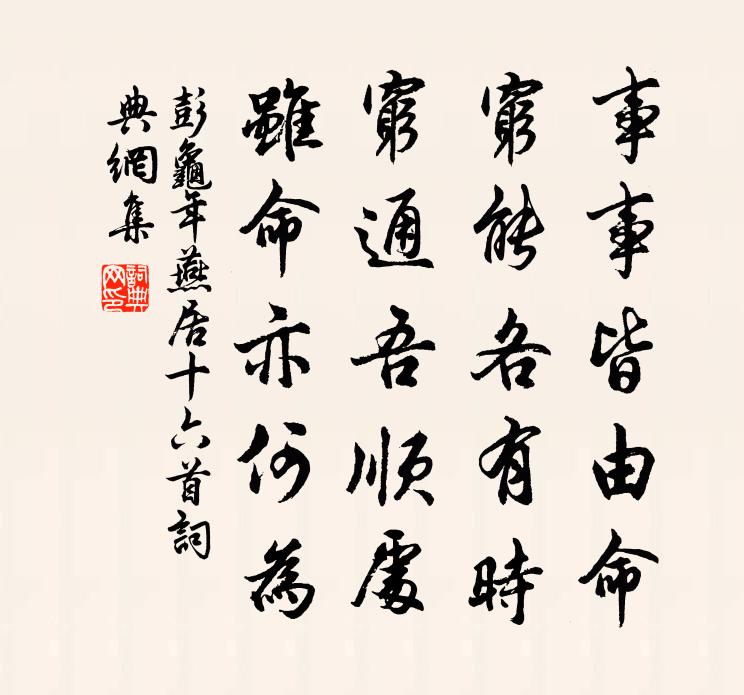 事事皆由命
窮能各有時
窮通吾順處
雖命亦何為
彭龜年燕居十六首詞
典網集
詞典
网印